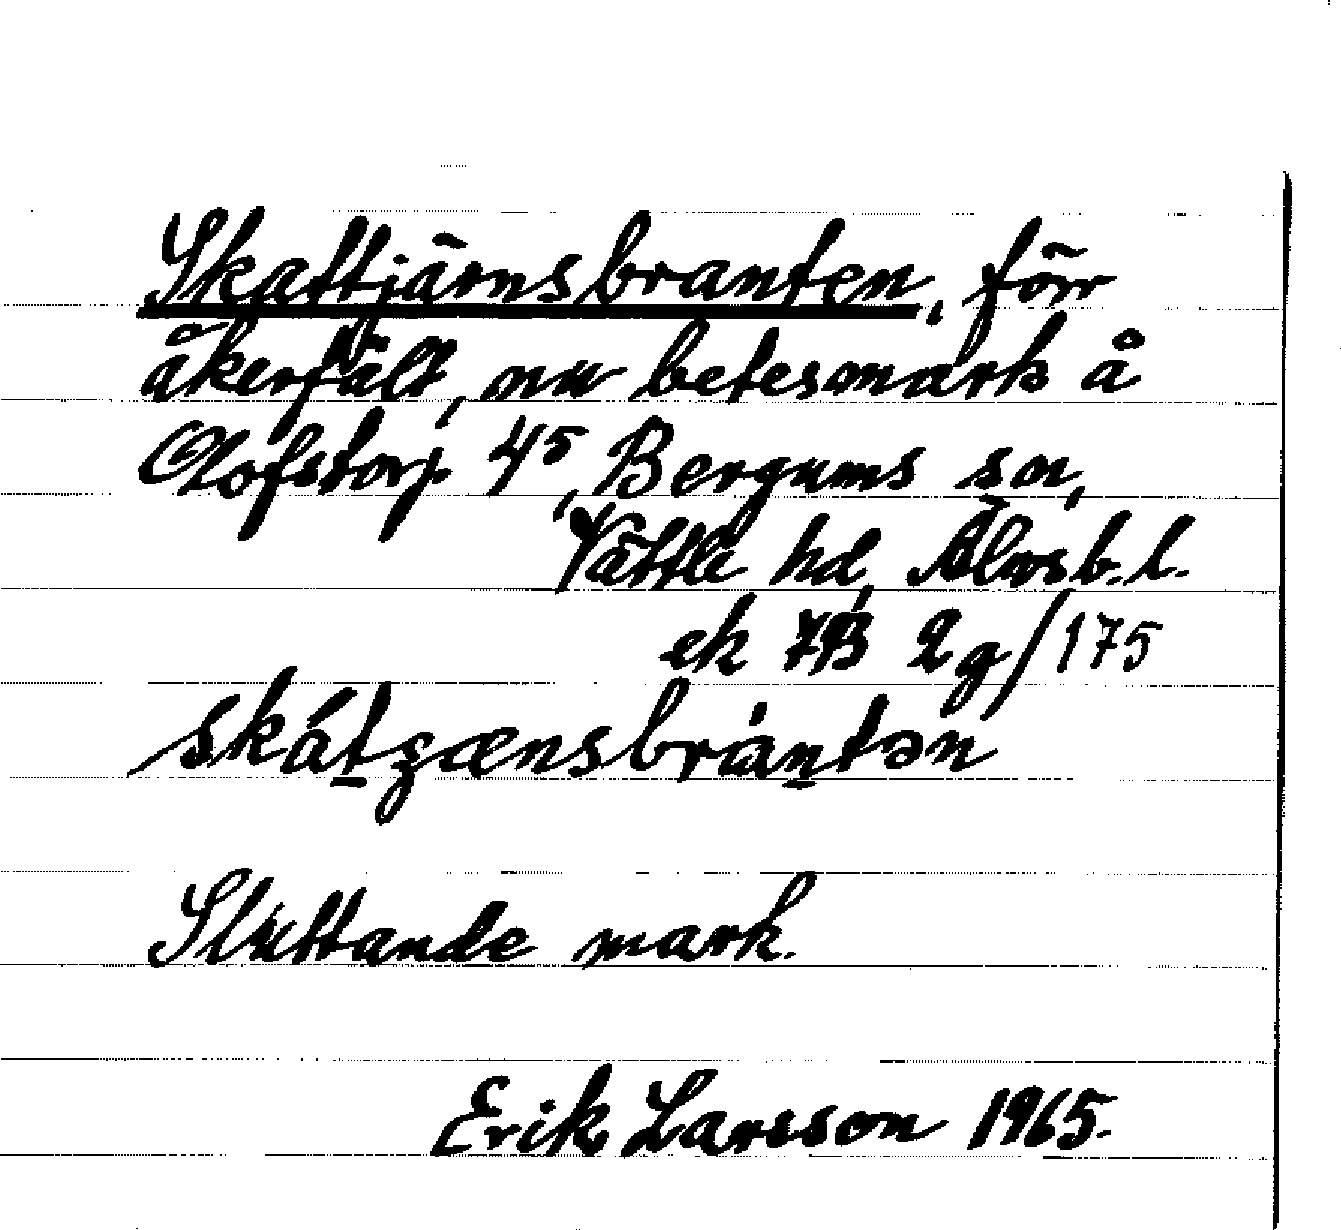 Skattjärnsbranten, förr
åkerfält, nu betesmark å
Olofstorp 4⁵, Bergums sn,
Vättle hd, Älvsb. l.
ek 7B 2g/175
skátʒænsbràntən
Sluttande mark.
Erik Larsson 1965.